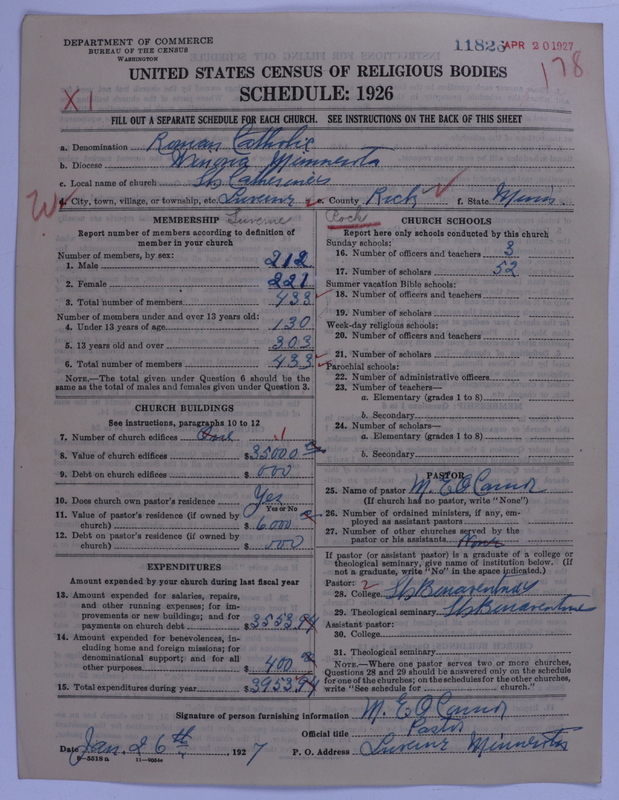 DEPARTMENT OF COMMERCE
BUREAU OF THE CENSUS
WASHINGTON
11826 APR 20 1927
178
X 1
UNITED STATES CENSUS OF RELIGIOUS BODIES
SCHEDULE: 1926
FILL OUT A SEPARATE SCHEDULE FOR EACH CHURCH. SEE INSTRUCTIONS ON THE BACK OF THIS SHEET
a. Denomination Roman Catholic
b. Diocese Winona Minnesota
c. Local name of church Sts Catherines
d. City, town, village, or township, etc. Luverne e. County Rock f. State Minn
MEMBERSHIP Luverne
Report number of members according to definition of member in your church
Number of members, by sex:
1. Male 212
2. Female 221
3. Total number of members 433
Number of members under and over 13 years old:
4. Under 13 years of age 130
5. 13 years old and over 303
6. Total number of members 433
NOTE.—The total given under Question 6 should be the same as the total of males and females given under Question 3.
CHURCH BUILDINGS
See instructions, paragraphs 10 to 12
7. Number of church edifices One 1
8. Value of church edifices $35000
9. Debt on church edifices $000
10. Does church own pastor's residence Yes
Yes or No
11. Value of pastor's residence (if owned by church) $6000
12. Debt on pastor's residence (if owned by church) 000
EXPENDITURES
Amount expended by your church during last fiscal year
13. Amount expended for salaries, repairs, and other running expenses; for improvements or new buildings; and for payments on church debt $3553.94
14. Amount expended for benevolences, including home and foreign missions; for denominational support; and for all other purposes $400
15. Total expenditures during year $3953.94
Rock
CHURCH SCHOOLS
Report here only schools conducted by this church
Sunday schools:
16. Number of officers and teachers 3
17. Number of scholars 52
Summer vacation Bible schools:
18. Number of officers and teachers
19. Number of scholars
Week-day religious schools:
20. Number of officers and teachers
21. Number of scholars
Parochial schools:
22. Number of administrative officers
23. Number of teachers—
a. Elementary (grades 1 to 8)
b. Secondary
24. Number of scholars—
a. Elementary (grades 1 to 8)
b. Secondary
PASTOR
25. Name of pastor M. E. O Connor
(If church has no pastor, write "None")
26. Number of ordained ministers, if any, employed as assistant pastors
27. Number of other churches served by the pastor or his assistants None
If pastor (or assistant pastor) is a graduate of a college or theological seminary, give name of institution below. (If not a graduate, write "No" in the space indicated.)
Pastor:
28. College Sts Benaventure
29. Theological seminary Sts Benaventure
Assistant pastor:
30. College
31. Theological seminary
NOTE.—Where one pastor serves two or more churches, Questions 28 and 29 should be answered only on the schedule for one of the churches; on the schedules for the other churches, write "See schedule for church."
Signature of person furnishing information M. E. O Connor
Official title Pastor
Date Jan. 26th, 1927 P. O. Address Luverne Minnesota
8-5518a 11-9064a